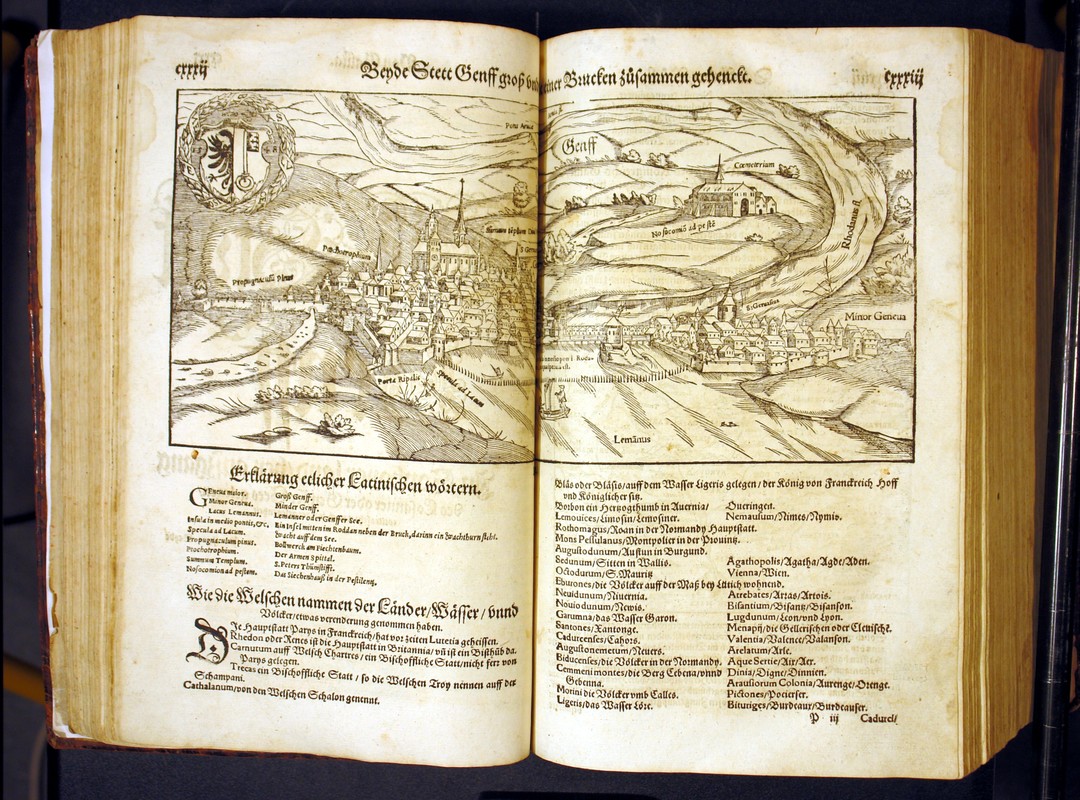 cxxxij
Beyde Stett Genff groß vnd
einer Brucken zůsammen gehenckt.
cxxxiij
1548
Pons Arue
Genff
Coemeterium
Nosocomiū ad pestē
Rhodanus fl.
Ptochotrophium
Propugnaculū Pinus
S. Geruasius
Minor Geneua
Porta Ripalis
Specula ad Lacum
Lemānus
Erklärung etlicher Latinischen wörtern.
Geneua maior. Groß Genff.
Minor Geneua. Minder Genff.
Lacus Lemannus. Lemanner oder Genffer See.
Insula in medio pontis, &c. Ein Insel mitten im Roddan neben der Bruck, darinn ein Wachthurn steht.
Specula ad Lacum. Wacht auff dem See.
Propugnaculum pinus. Bollwerck am Fiechtenbaum.
Ptochotrophium. Der Armen Spittel.
Summum Templum. S. Peters Thůmstifft.
Nosocomion ad pestem. Das Siechenhauß in der Pestilentz.
Wie die Welschen nammen der Länder/Wässer/vnnd
Völcker/etwas verenderung genommen haben.
Die Hauptstatt Parys in Franckreich/hat vor zeiten Lutetia geheissen.
Rhedon oder Renes ist die Hauptstatt in Britannia/vñ ist ein Bisthůb da.
Carnutum auff Welsch Chartres/ein Bischoffliche Statt/nicht ferr von
Parys gelegen.
Trecas ein Bischoffliche Statt/so die Welschen Troy nennen auff der
Schampani.
Cathalanum/von den Welschen Schalon genennt.
Bläs oder Bläsis/auff dem Wasser Ligeris gelegen/der König von Franckreich Hoff
vnd Königlicher sitz.
Borbon ein Hertzogthumb in Auernia/
Lemouices/Limosin/Lemosiner.
Rothomagus/Roan in der Normandy Hauptstatt.
Mons Pessulanus/Montpolier in der Prouintz.
Augustodunum/Austun in Burgund.
Sedunum/Sitten in Wallis.
Octodurum/S. Mauritz
Eburones/die Völcker auff der Maß bey Lütich wohnend.
Neuidunum/Niuernia.
Nouiodunum/Newis.
Garumna/das Wasser Garon.
Santones/Xantonge.
Cadurcenses/Cahors.
Augustonemetum/Neuers.
Biducenses/die Völcker in der Normandy.
Cemmeni montes/die Berg Cebena/vnnd
Gebenna.
Morini die Völcker vmb Calles.
Ligeris/das Wasser Löre.
Oueringen.
Nemausum/Nimes/Nymis.
Agathopolis/Agatha/Agde/Aden.
Vienna/Wien.
Atrebates/Arras/Artois.
Bisantium/Bisantz/Bisanson.
Lugdunum/Leon/vnd Lyon.
Menapij/die Gellerischen oder Clevische.
Valentia/Valence/Valanson.
Arelatum/Arle.
Aque Sertie/Air/Aer.
Dinia/Digne/Dinnien.
Arausiorum Colonia/Aurenge/Orenge.
Pictones/Poctierser.
Bituriges/Burdeaux/Burdeauser.
P iij
Cadurci/